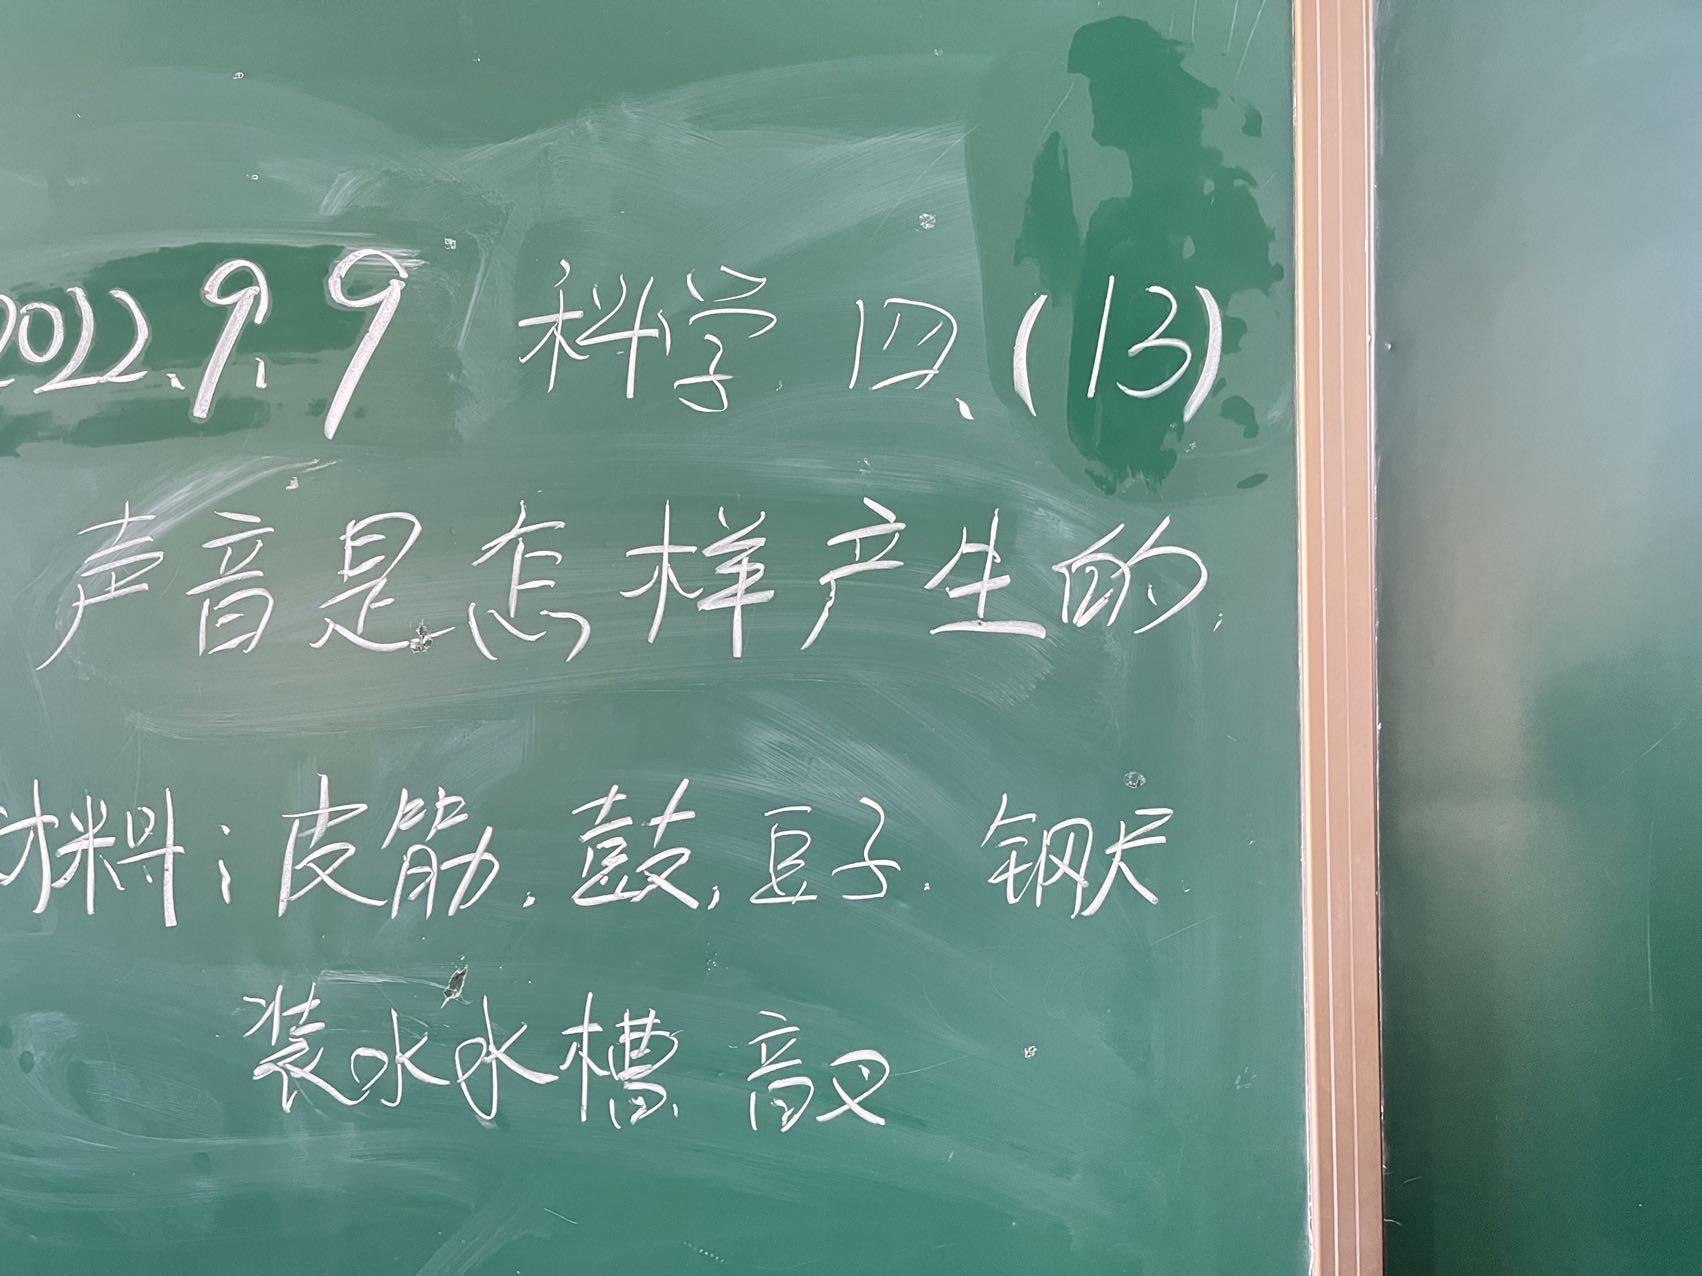 2022.9.9 科学 四.(13)
声音是怎样产生的.
材料:皮筋.鼓,豆子.钢尺
装水水槽 音叉